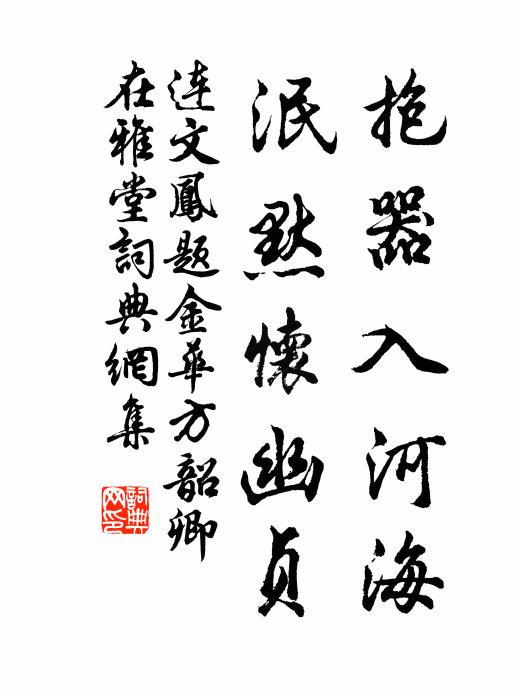 抱器入河海
泯默懷幽貞
連文鳳題金華方韶卿
在雅堂詞典網集
詞典网印